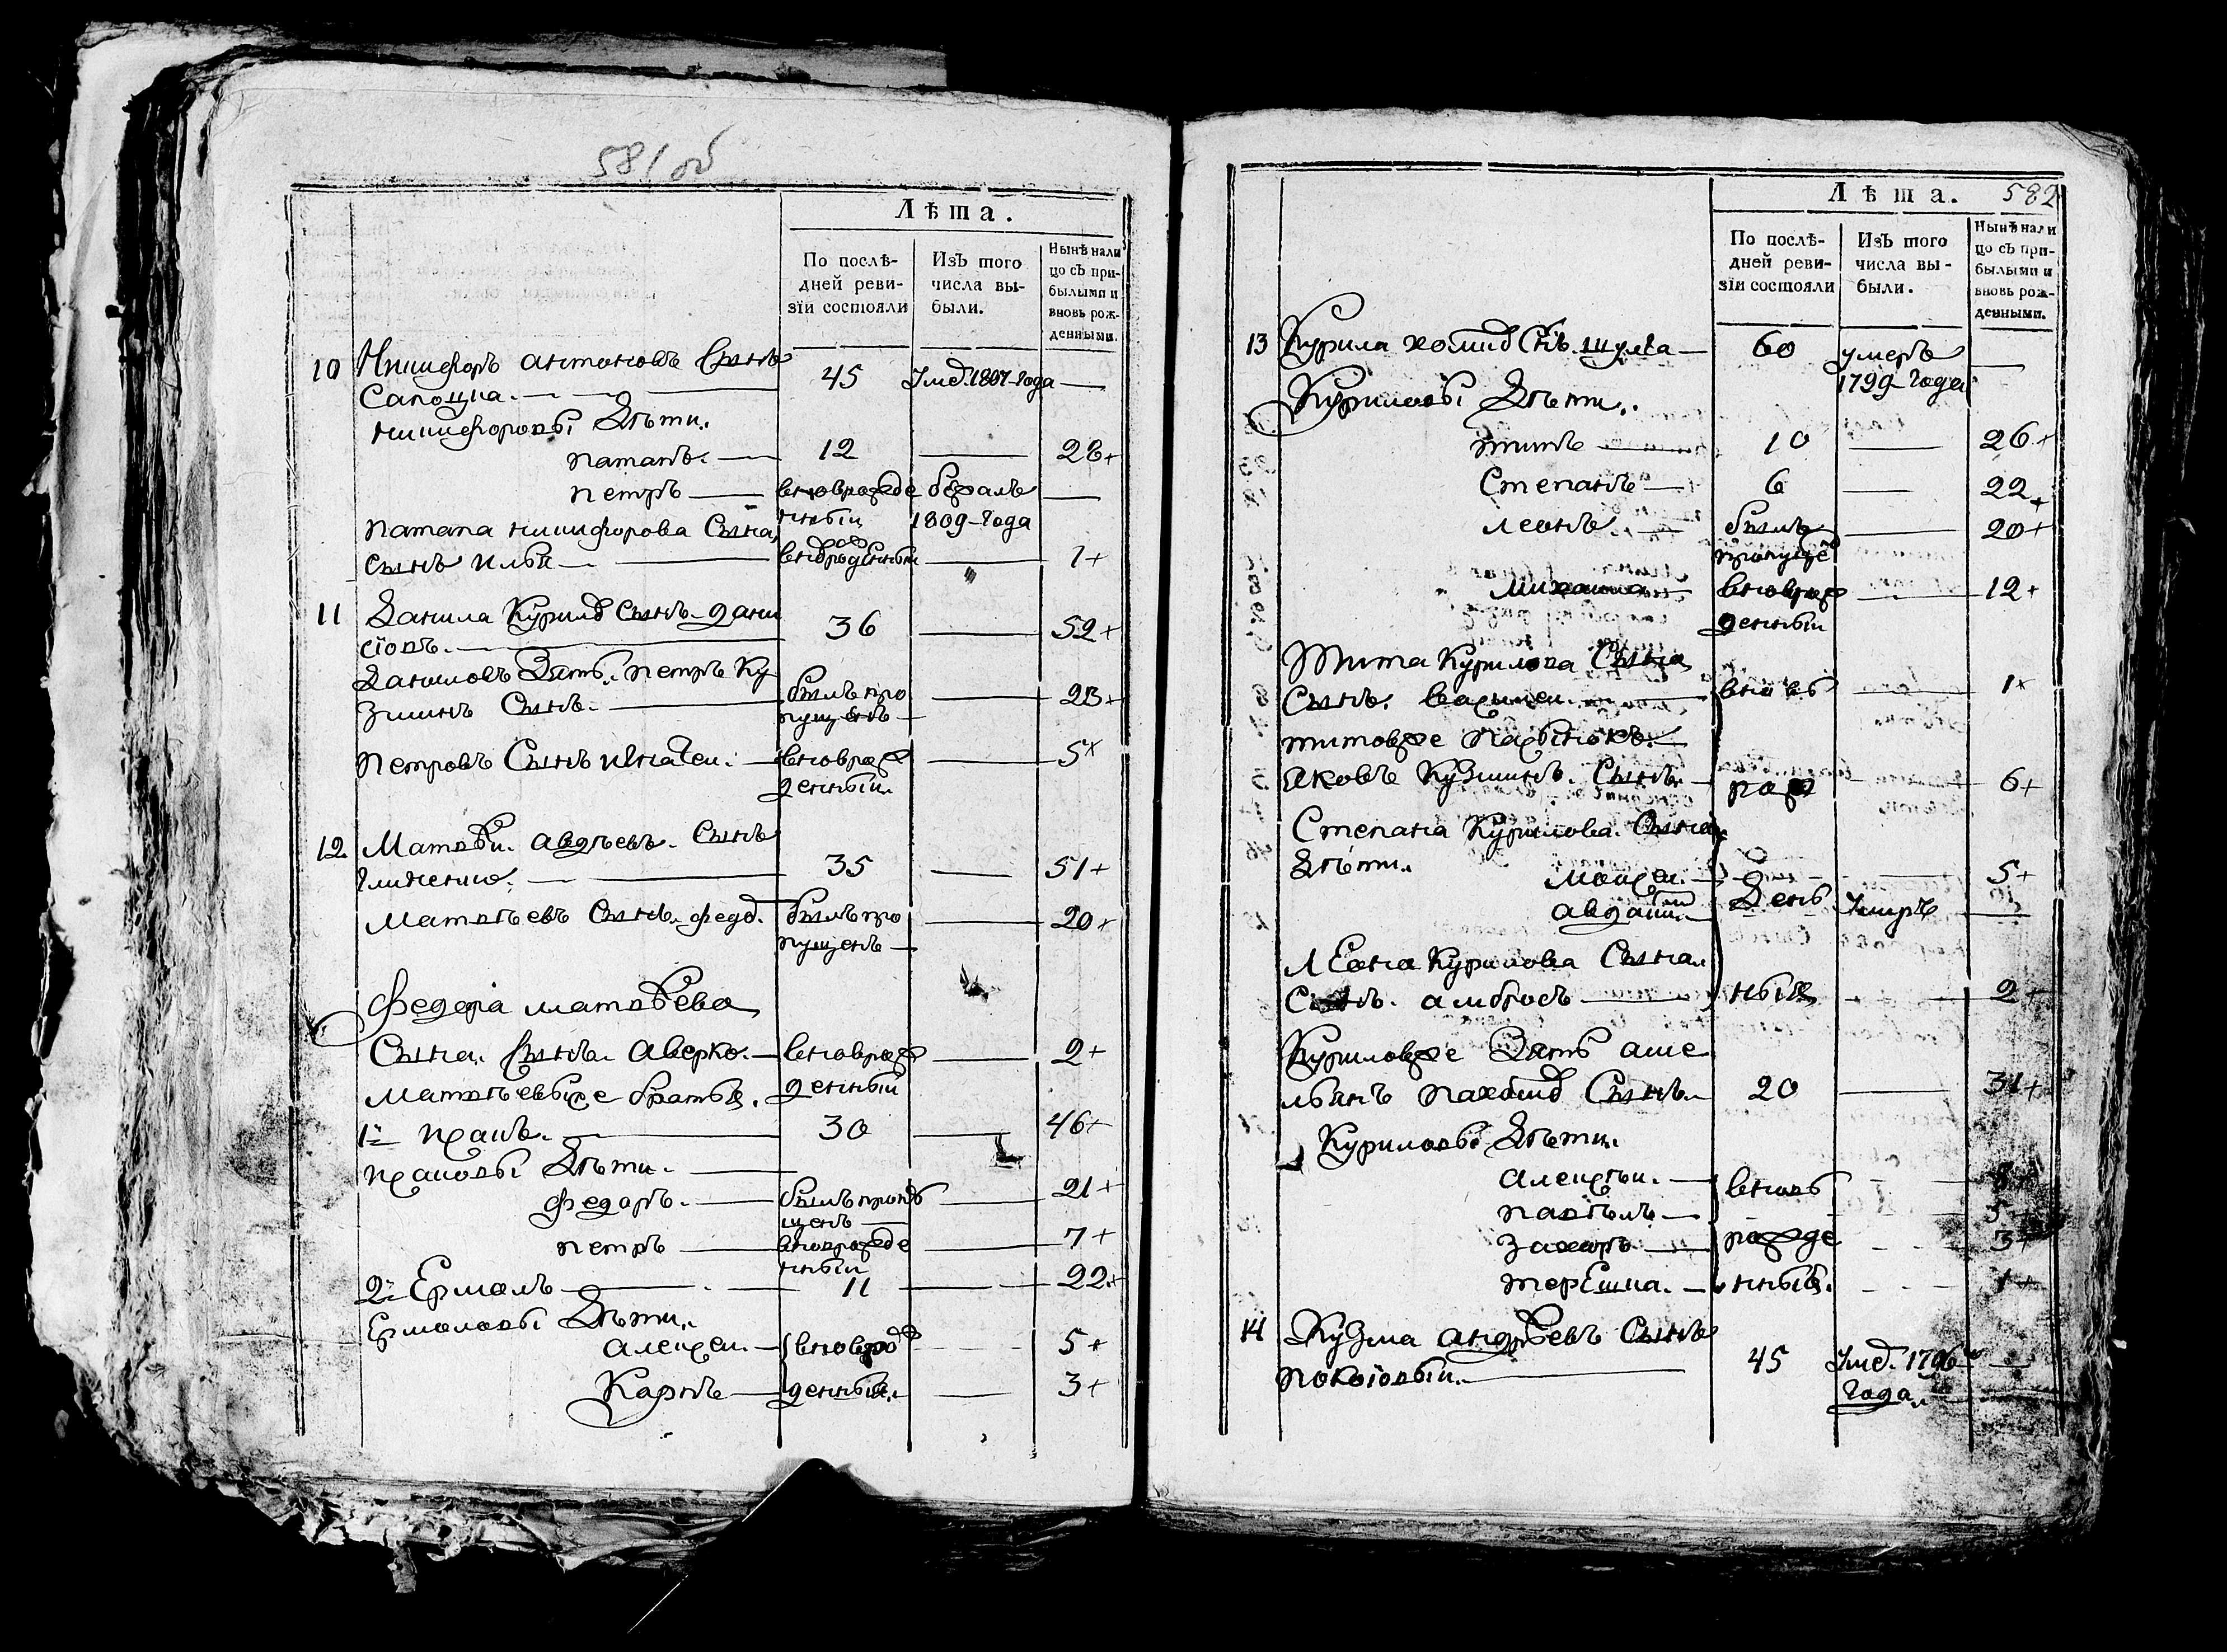 581 об
Лѣта.
По послѣ-
дней реви-
зїи состояли
Изъ того
числа вы-
были.
Нынѣ нали
цо съ при-
былыми и
вновь рож-
денными.
10 Никифоръ антоновъ Сынъ
45 Умѣ. 1807 года —
Никифоровы Дѣти.
патапъ. — 12 — 28+
петръ — вновврожде бѣжалъ —
нный 1809 года
патапа никифорова Сына,
сынъ илья — вновроденный — 1+
11 Данила Курило Сынъ дани
36 — 52+
Даниловъ Зять. петръ Ку
зминъ Сынъ. — былъ про — 23+
пущенъ —
петровъ Сынъ игнатеи. — вновраж — 5+
денныи.
12. Матвѣи. авдѣевъ. Сынъ
35 — 51+
Матвѣевъ Сынъ. федо. былъ про — 20+
пущенъ —
Федора матвѣева
Сына. Сынъ. аверко. — вновраж — 2+
денный
Матвѣевые братья.
1й — 30 — 46+
Дѣти. —
федоръ. — былъ пропу — 21+
щенъ —
петръ — вноврожде — 7+
нный
2й Ермолъ — 11 — 22+
Ермоловы Дѣти.
алексеи. — вновро — 5+
Карпъ — денный. — 3+
582
Лѣта.
По послѣ-
дней реви-
зїи состояли
Изъ того
числа вы-
были.
Нынѣ нали
цо съ при-
былыми и
вновь рож-
денными.
13 Курила хомио Снъ шулга — 60 умеръ —
1799 года
Куриловы Дѣти.
титъ — 10 — 26+
Степанъ — 6 — 22+
леонъ — былъ — 20+
пропуще
михаила — вновраж — 12+
денныи
Тита Курилова Сына
Сынъ. василеи. — вновь — 1+
титовже пасынокъ. —
яковъ Кузминъ. Сынъ. — раж — 6+
Степана Курилова. Сына
Дѣти.
моисеи. — 5+
День Умръ —
Леона Курилова Сына
Сынъ. амбросъ — ный — 2+
Куриловже Зять аме
льянъ пахомо Сынъ. 20 — 31+
Куриловы Дѣти.
алексѣи. — вновь
павелъ — 5+
захаръ — рожде 3+
терешка. — нный. 1+
14 Кузма андрѣевъ Сынъ
45 Умѣ. 1796 —
года